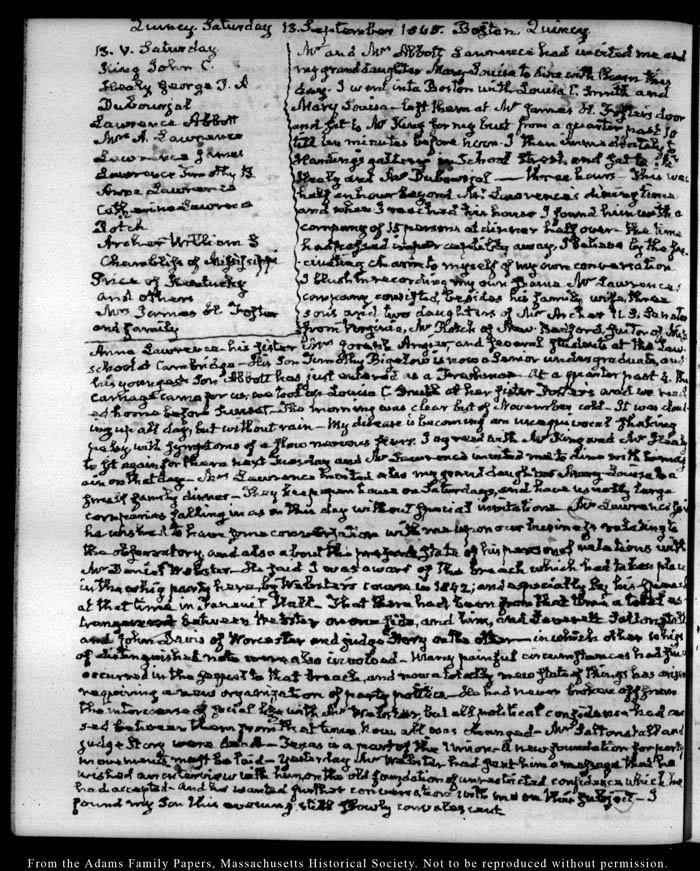 Quincy Saturday 13. September 1845. Boston. Quincy
13. V. Saturday
King John C.
Healy George P. A
DuBourjal
Lawrence Abbott
Mrs A. Lawrence
Lawrence James
Lawrence Timothy B
Anna Lawrence
Catherine Lawrence
Rotch
Archer William S
Chambliss of Mississippi
Price of Kentucky
and others
Mrs James H. Foster
and family
Mr and Mrs Abbott Lawrence had invited me and
my granddaughter Mary Louisa to dine with them this
day. I went into Boston with Louisa C. Smith and
Mary Louisa - left them at Mr James H. Foster's door
and sat to Mr King for my bust from a quarter past 10
till ten minutes before noon. I then immediately to
Harding's gallery in School Street, and sat to Mr
Healy and Mr Dubourjal — three hours - This was
half an hour beyond Mr Lawrence's dining time
and when I reached his house I found him with a
company of 15 persons at dinner half over - the time
had passed imperceptibly away, I believe by the fas-
cinating charm to myself of my own conversation
I blush in recording my own Mr Lawrence's
company consisted, besides his family, wife, three
sons and two daughters of Mr Archer U.S. Senator
from Virginia, Mr Rotch of New Bedford, suitor of Miss
Anna Lawrence his sister Mrs Joseph Angier, and several students at the Law-
school at Cambridge - His Son Timothy Bigelow is now a Senior undergraduate, and
his youngest Son Abbott has just entered as a Freshman - At a quarter past 4. the
carriage came for us, we took up Louisa C. Smith at her sister Foster's and we reach-
ed home before Sunset - The morning was clear but of November cold - It was cloud-
ing up all day, but without rain - My disease is becoming an unequivocal shaking
palsy with symptoms of a slow nervous fever. I agreed with Mr King and Mr Healy
to sit again for them next Tuesday and Mr Lawrence invited me to dine with him ag-
ain on that day - Mrs Lawrence invited also my granddaughter Mary Louisa to a
small family dinner - They keep open house on Saturdays, and have usually large
companies falling in as on this day without special invitations. Mr Lawrence said
he wished to have some conversation with me upon our business relating to
the observatory, and also about the present state of his personal relations with
Mr Daniel Webster - He said I was aware of the breach which had taken place
in the whig party here, by Webster's course in 1842, and especially by his speech
at that time in Faneuil Hall - That there had been from that time a total es-
trangement between Webster on one side, and him, and Leverett Saltonstall
and John Davis of Worcester and judge Story on the other - in which other whigs
of distinguished note were also involved - Many painful circumstances had since
occurred in the sequel to that breach, and now a totally new state of things has arisen
requiring a new organization of party politics - He had never broken off from
the intercourse of social life with Mr Webster, but all political confidence had cea-
sed between them from that time, now all was changed - Mr Saltonstall and
judge Story were dead - Texas is a part of the Union - A new foundation for party
movements must be laid - Yesterday Mr Webster had sent him a message that he
wished an interview with him, on the old foundation of unrestricted confidence which he
had accepted - and he wanted further conversation with me on that subject - I
found my Son this evening still slowly convalescent
From the Adams Family Papers, Massachusetts Historical Society. Not to be reproduced without permission.